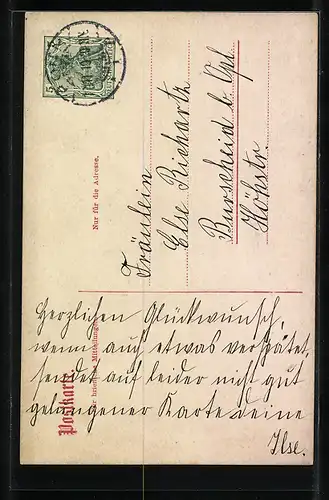 Postkarte
Nur für die Adresse.
Fräulein
Else Richartz
Burscheid b. Opl.
Höhstr.
Herzlichen Glückwunsch,
wenn auch etwas verspätet,
sendet auf leider nicht gut
gelungener Karte deine
Ilse.